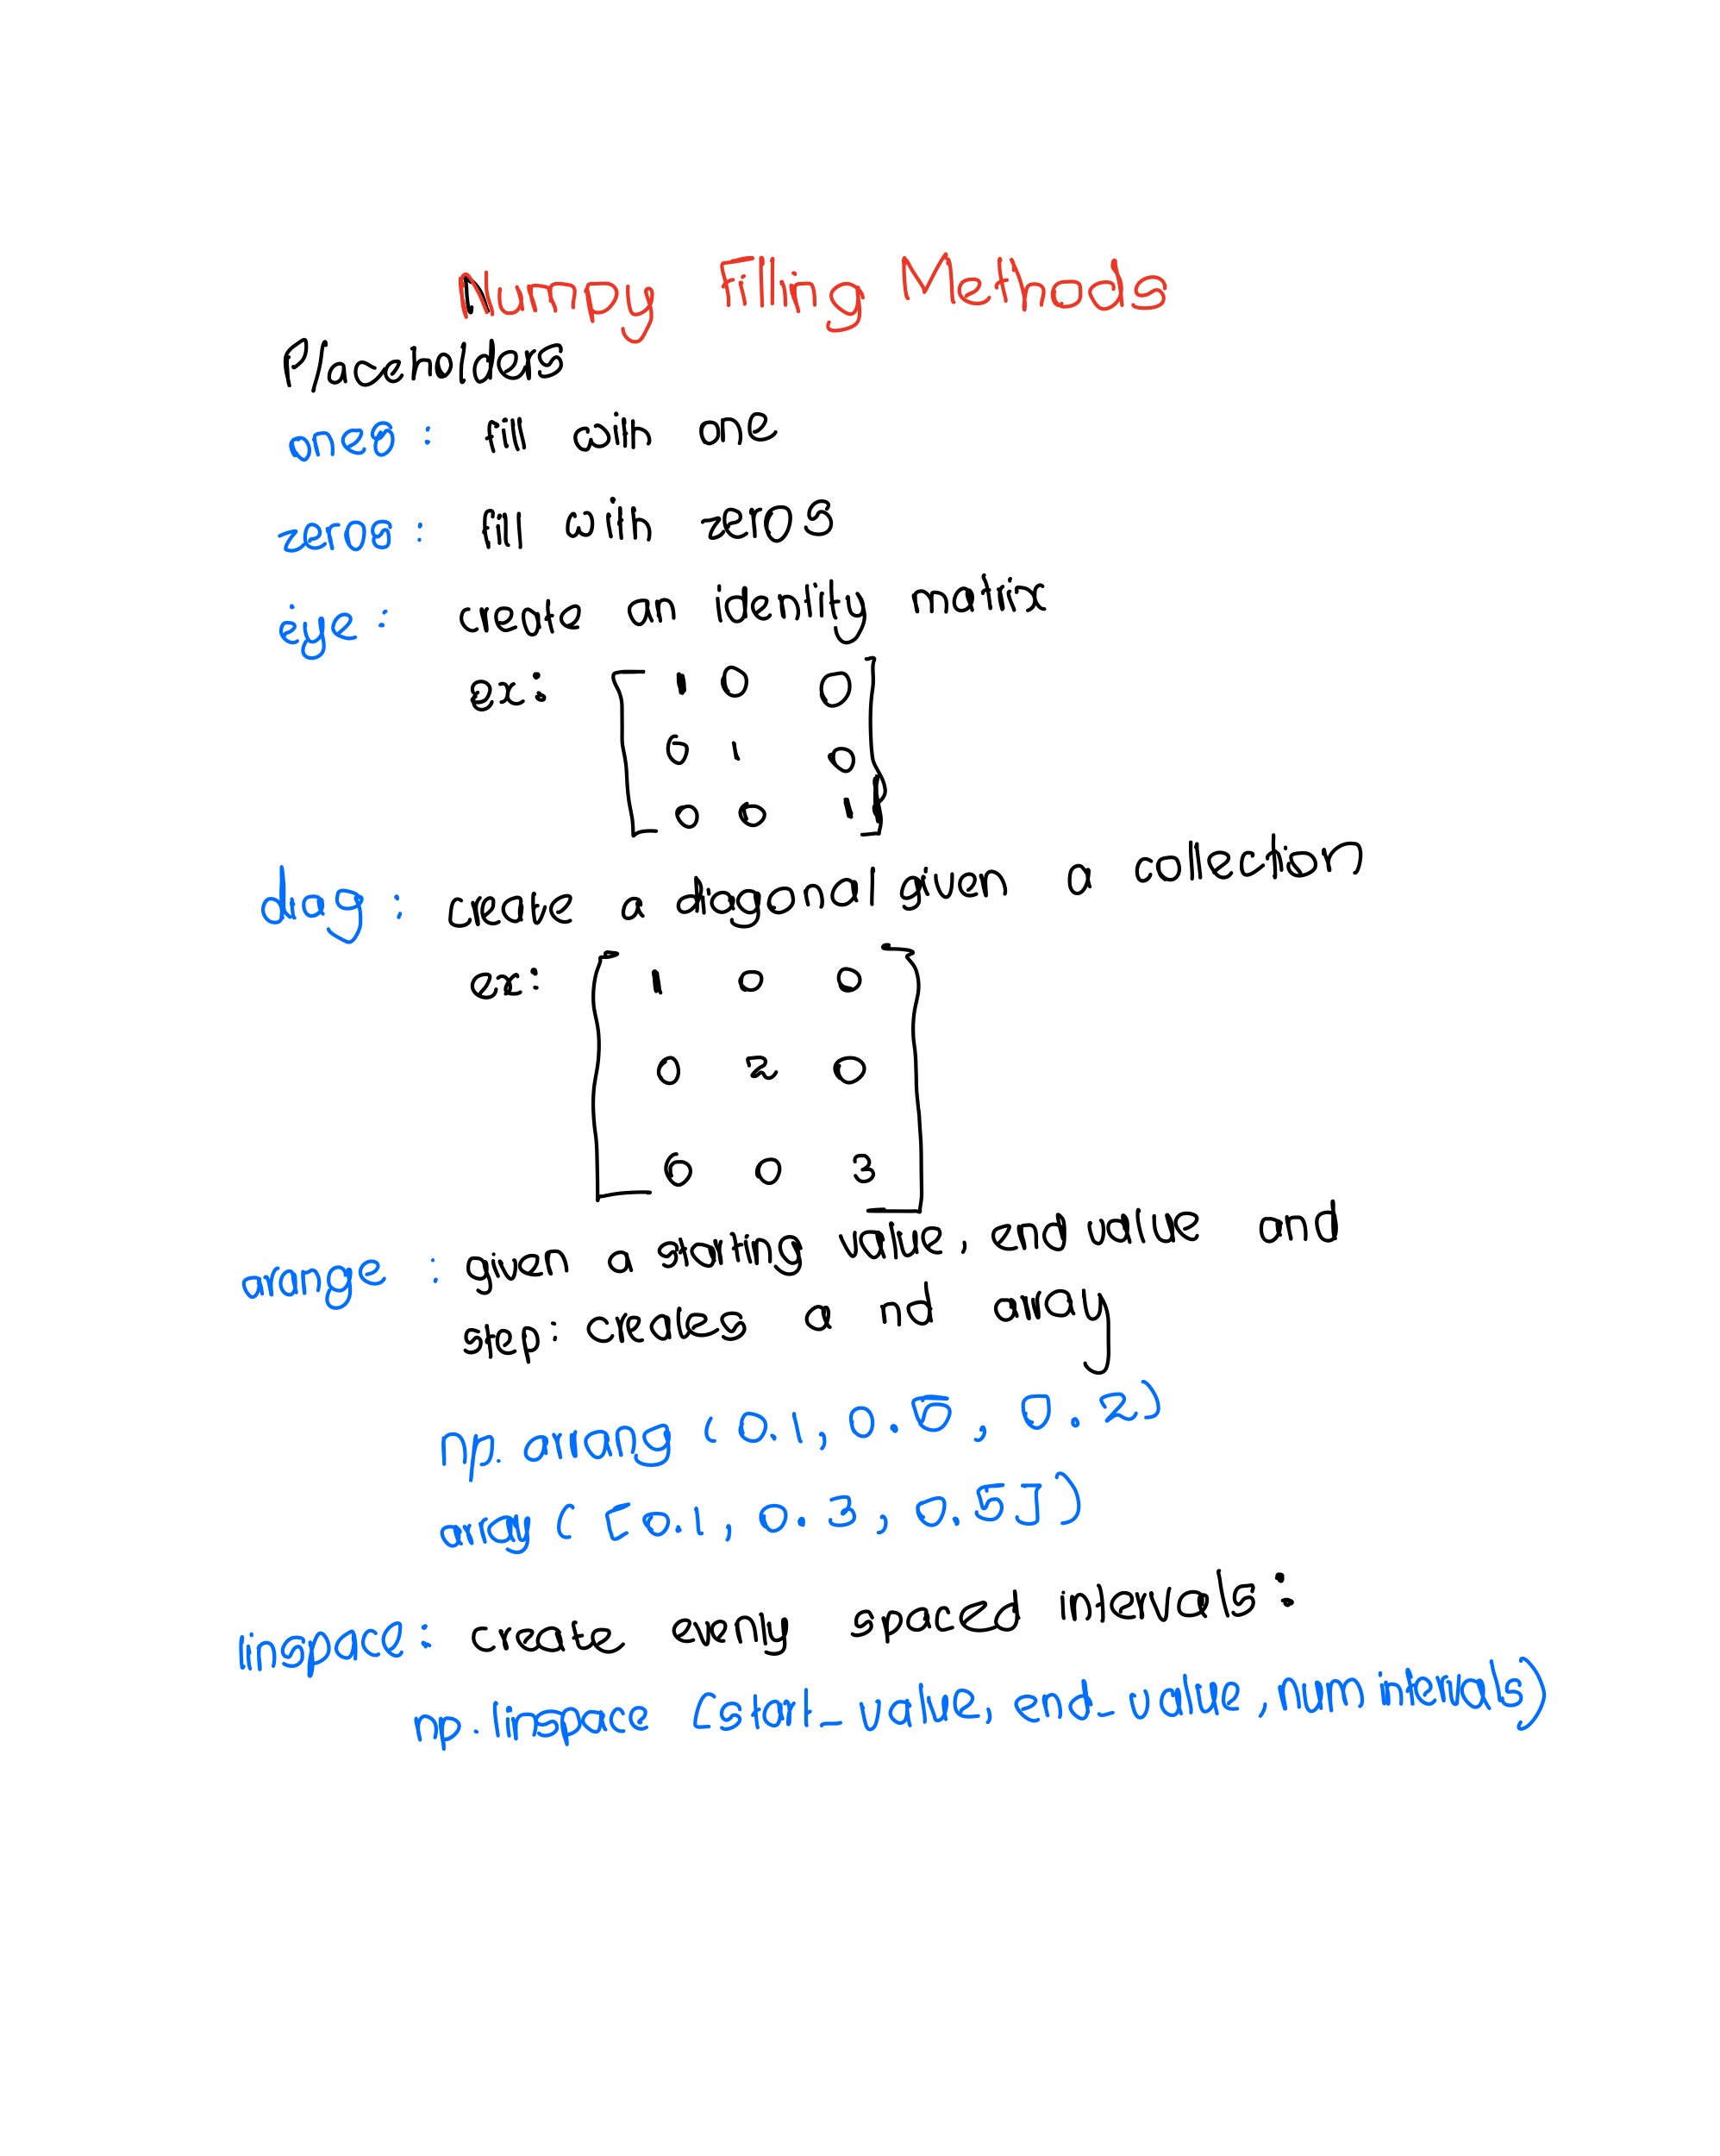 Numpy Filling Methods
Placeholders
ones: fill with one
zeros: fill with zeros
eye: create an identity matrix
ex: [ 1 0 0
0 1 0
0 0 1 ]
diag: create a diagonal given a collection
ex: [ 1 0 0
0 2 0
0 0 3 ]
arange: given a starting value, end value and
step: creates a nd array
np. arang (0.1, 0.5, 0.2)
array ( [0.1, 0.3, 0.5])
linspace: create evenly spaced intervals:
np. linspace (start_value, end_value, num intervals)